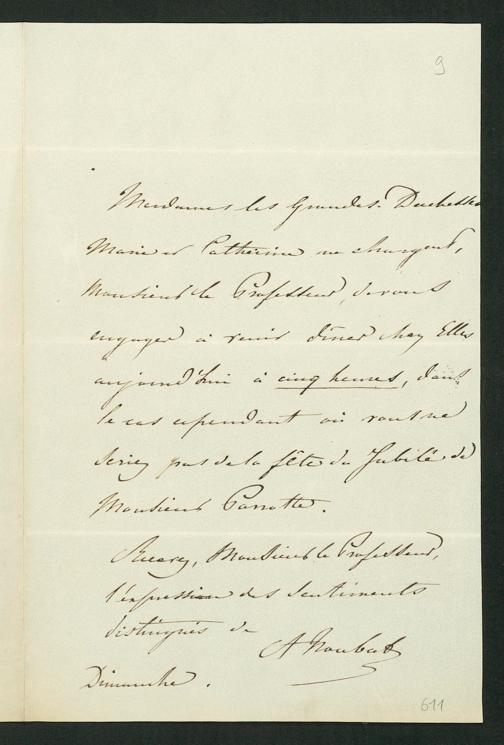 9
Mesdames les Grandes-Duchesses
Marie et Catherine me chargent,
Monsieur le Professeur, de vous
engager à venir dîner chez Elles
aujourd'hui à cinq heures, dans
le cas cependant où vous ne
seriez pas de la fête du Jubilé de
Monsieur Parrotte.
Recevez, Monsieur le Professeur,
l'expression des sentiments
distingués de
Dimanche.
611